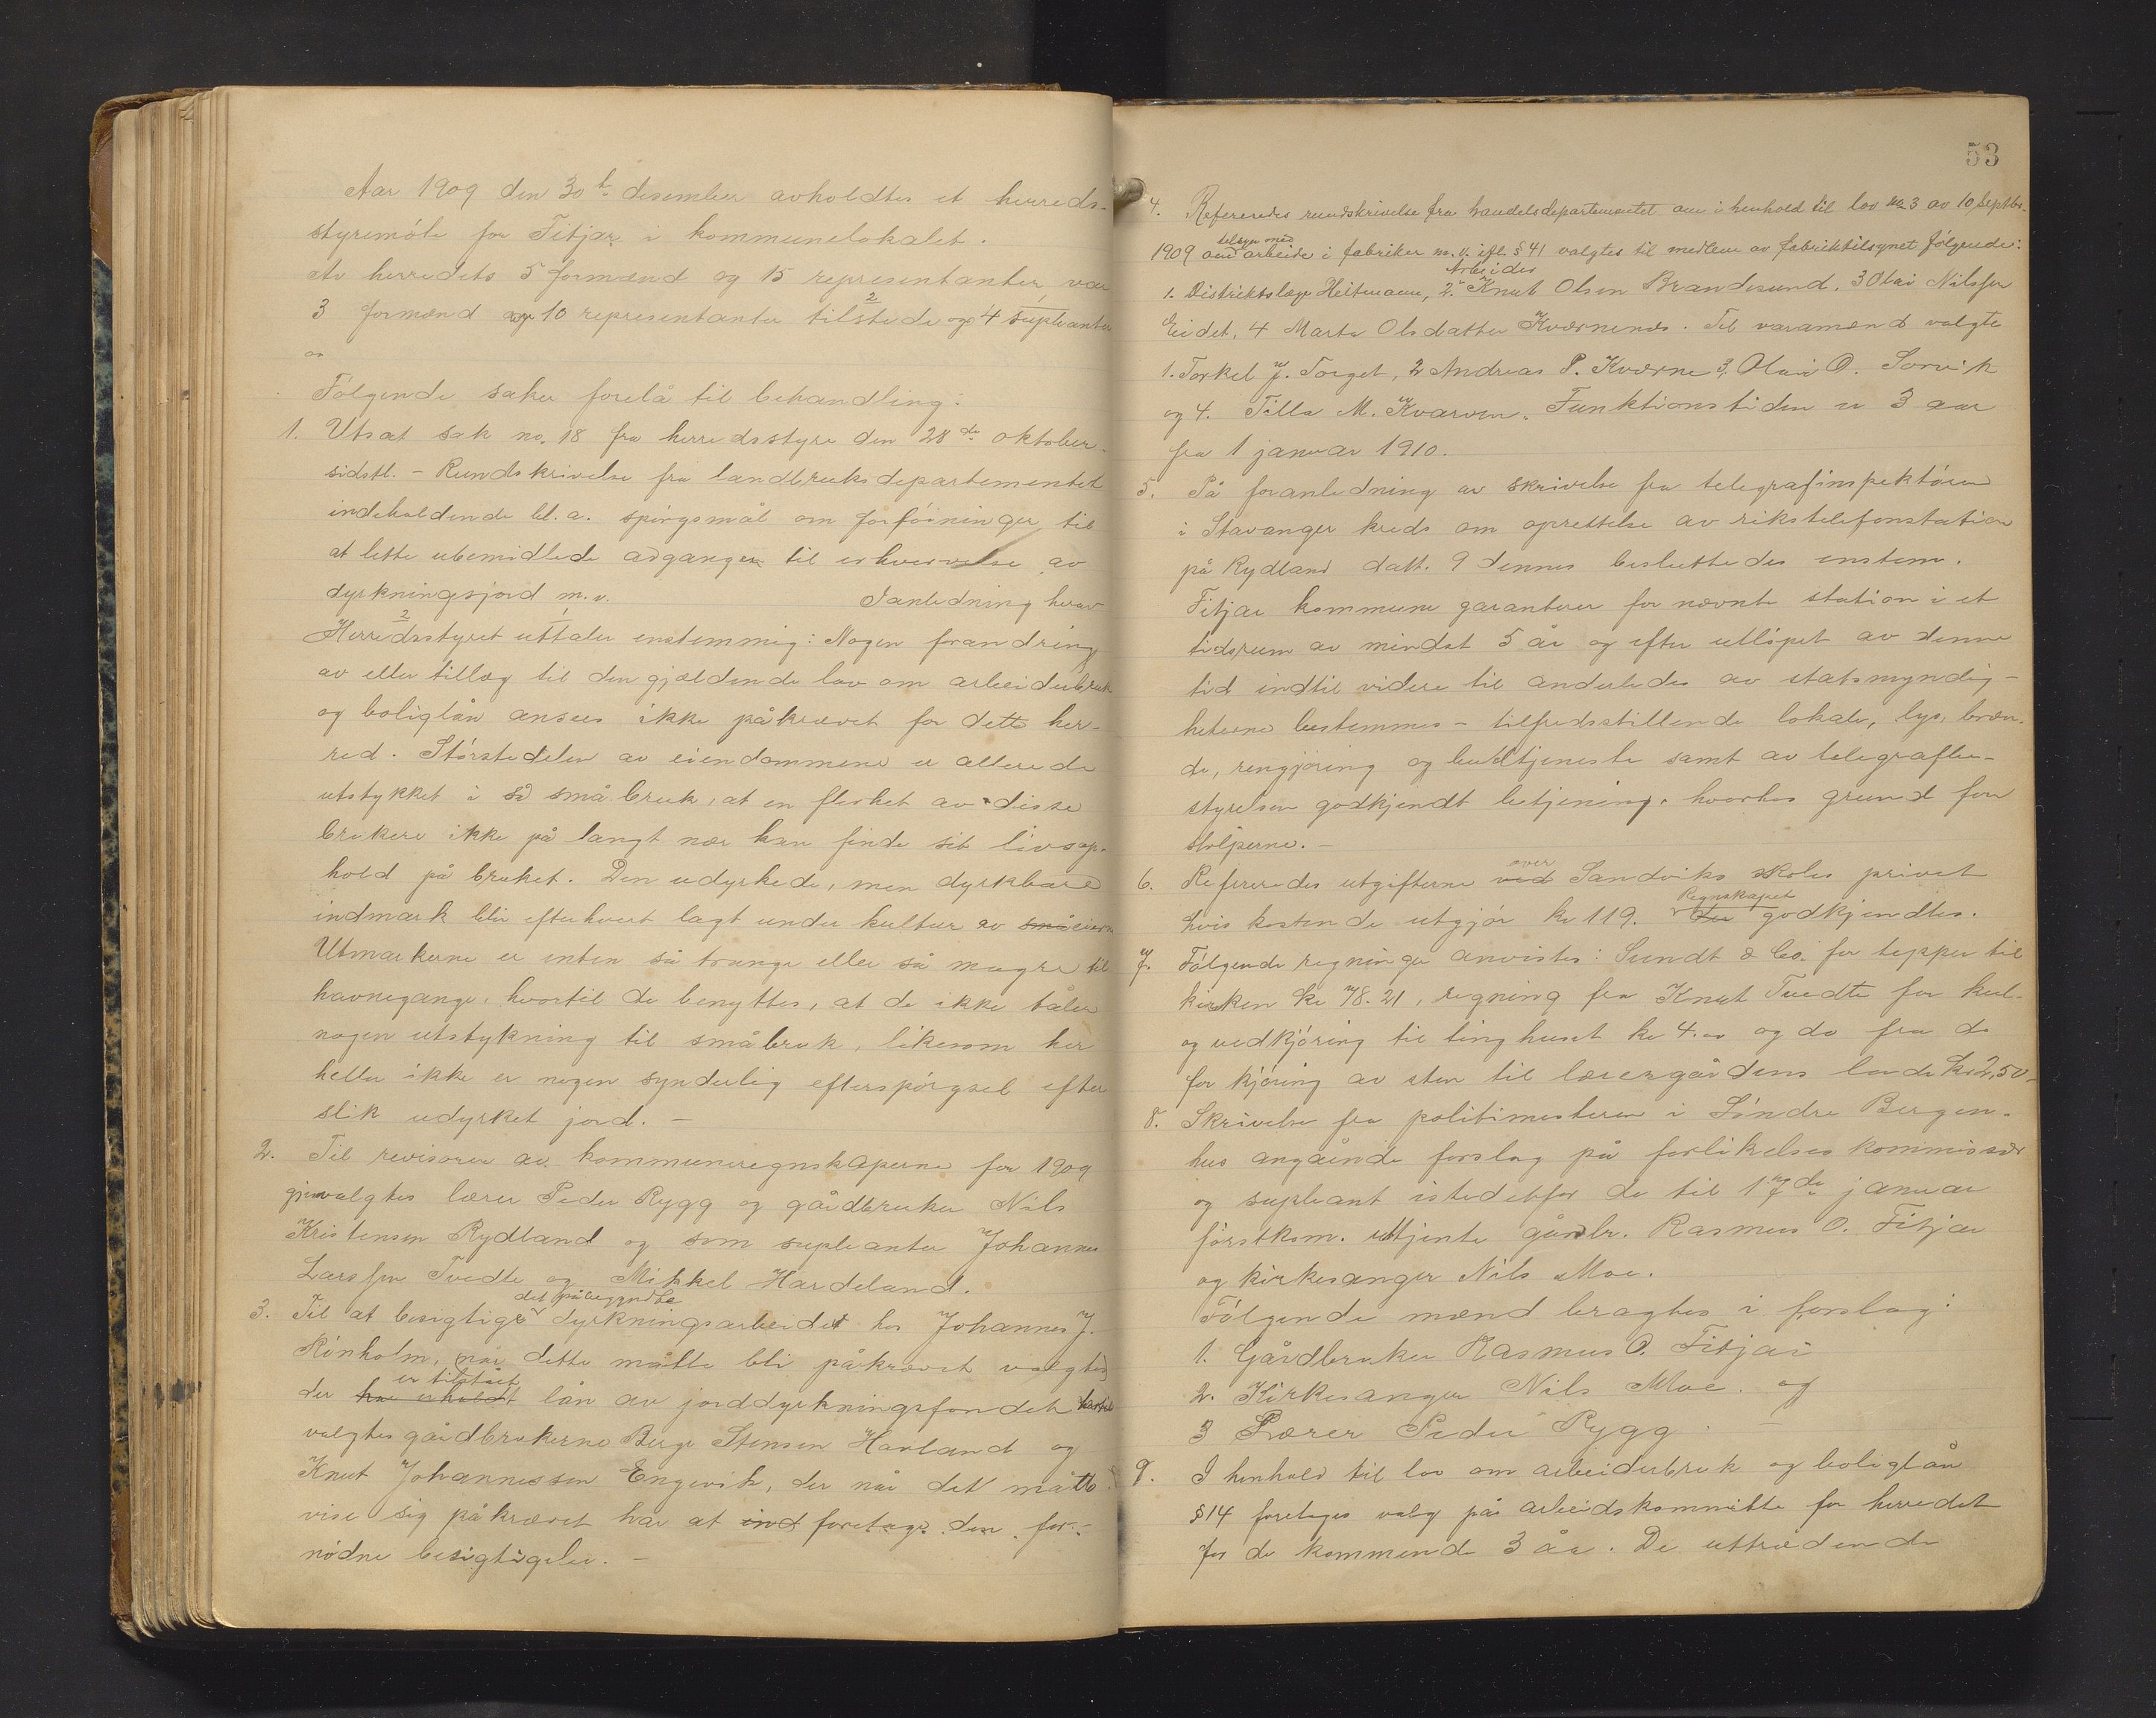 Aar 1909 den 30te desember avholdtes et herreds-
styremöte for Fitjar i kommunelokalet.
Av herredets 5 formænd og 15 representanter var
2
3 formænd og 10 representanter tilstede og 4 supleanter
Fölgende saker forelå til behandling:
1. Utsat sak no. 18 fra herredsstyre den 28de oktober
sidstl. - Rundskrivelse fra landbruksdepartementet
indeholdende bl. a. spörgsmål om forföininger til
at lette ubemidlede adgangen til erhvervelse av
dyrkningsjord m.v. I anledning herav
2 1
Herredsstyret uttaler enstemmig: Nogen forandring
av eller tillæg til den gjældende lov om arbeiderbruk
og boliglån ansees ikke påkrævet for dette her-
red. Störstedelen av eiendommene er allerede
utstykket i så småbruk, at en flerhet av disse
brukere ikke på langt nær kan finde sit livsop-
hold på bruket. Den udyrkede, men dyrkbare
indmark blir efterhvert lagt under kultur av små eierne
Utmarkene er enten så trange eller så magre til
havnegange, hvortil de benyttes, at de ikke tåler
nogen utstykning til småbruk, likesom her
heller ikke er nogen synderlig efterspörgsel efter
slik udyrket jord. -
2. Til revisorer av kommuneregnskaperne for 1909
gjenvalgtes lærer Peder Rygg og gårdbruker Nils
Kristensen Rydland og som supleanter Johannes
Larssen Tvedte og Mikkel Hardeland.
det påbegyndte
3. Til at besigtige dyrkningsarbeidet hos Johannes J.
Rinholm, når dette måtte bli påkrævet valgtes
er tilstaaet
der har erholdt lån av jorddyrkningsfondet
valgtes gårdbrukerne Berge Stensen Havland og
Knut Johannessen Engevik, der når det måtte
vise sig påkrævet har at ind foretage den for-
nödne besigtigelse. -
53
4. Refereredes rundskrivelse fra handelsdepartementet om i henhold til lov no 3 av 10 septbr.
tilsyn med
1909 om arbeide i fabriker m.v. ifl. § 41 valgtes til medlem av fabriktilsynet fölgende:
Arbeider
1. Distriktslæge Heitmann, 2. Knut Olsen Brandesund, 3 Olai Nilssen
Eidet, 4 Marta Olsdatter Kværnenes. Til varamænd valgte
1. Torkel J. Torget, 2 Andreas P. Kværne 3, Olai O. Sørvik
og 4. Tilla M. Kvarven. Funktionstiden er 3 aar
fra 1 januar 1910.
5. På foranledning av skrivelse fra telegrafinspektören
i Stavanger kreds om oprettelse av rikstelefonstation
på Rydland datt. 9 dennes besluttedes enstem.
Fitjar kommune garanterer for nævnte station i et
tidsrum av mindst 5 år og efter utlöpet av denne
tid indtil videre til anderledes av statsmyndig-
heterne bestemmes - tilfredsstillende lokale, lys, bræn-
de, rengjöring og budtjeneste samt av telegrafbe-
styrelsen godkjendt betjening, hvorhos grund for
stolperne. -
over
6. Refereredes utgifterne ved Sandviks skoles privet
Regnskapet
hvis kostende utgjör kr 119. der godkjendtes.
7. Fölgende regninger anvistes: Sundt & Co. for tepper til
kirken kr 78.21, regning fra Knut Tvedte for kul-
og vedkjöring til tinghuset kr 4.00 og do fra do
for kjöring av sten til lærergårdens lade kr 2,50 -
8. Skrivelse fra politimesteren i Söndre Bergen-
hus angående forslag på forlikelseskommissær
og supleant istedetfor de til 17de januar
förstkom. uttjente gårdbr. Rasmus O. Fitjar
og kirkesanger Nils Moe.
Fölgende mænd bragtes i forslag:
1. Gårdbruker Rasmus O. Fitjar
2. Kirkesanger Nils Moe. og
3 Lærer Peder Rygg
9. I henhold til lov om arbeiderbruk og boliglån
§ 14 foretages valg på arbeidskommitte for herredet
for de kommende 3 år. De uttrædende